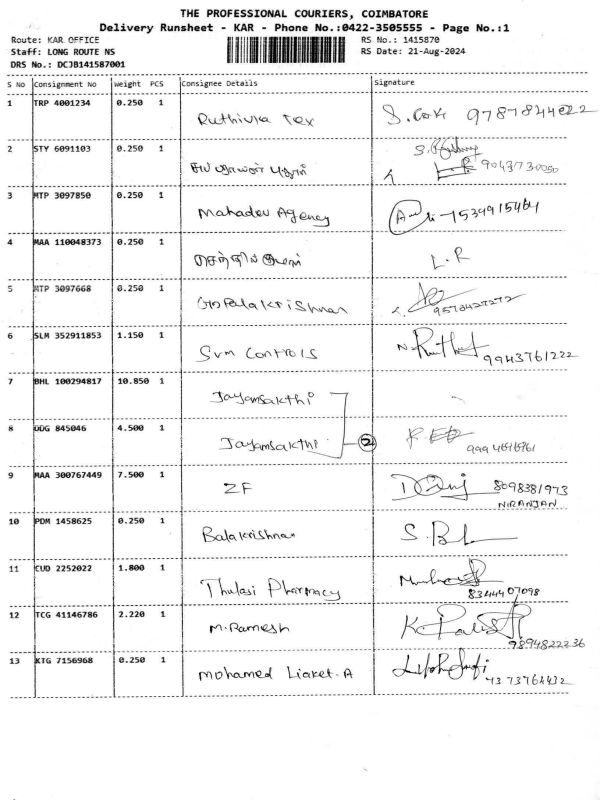 THE PROFESSIONAL COURIERS, COIMBATORE
Delivery Runsheet - KAR - Phone No.:0422-3505555 - Page No.:1
Route: KAR OFFICE RS No.: 1415870
Staff: LONG ROUTE NS RS Date: 21-Aug-2024
DRS No.: DCJB141587001
S No Consignment No Weight PCS Consignee Details Signature
1 TRP 4001234 0.250 1 Ruthivra Tex 9787844022
2 STY 6091103 0.250 1 9043730050
3 MTP 3097850 0.250 1 Mahadev Agency
4 MAA 110048373 0.250 1 செந்தில்குமார் L.R
5 MTP 3097668 0.250 1 Gopalakrishnan 9578427272
6 SLM 352911853 1.150 1 Svm Controls 9943761222
7 BHL 100294817 10.850 1 Jayamsakthi
8 ODG 845046 4.500 1 Jayamsakthi 2
9 MAA 300767449 7.500 1 ZF 8098381973
NIRANJAN
10 PDM 1458625 0.250 1 Balakrishnan
11 CUD 2252022 1.800 1 Thulasi Pharmacy 8344407098
12 TCG 41146786 2.220 1 M.Ramesh 9894822236
13 KTG 7156968 0.250 1 Mohamed Liaket.A 7373764432